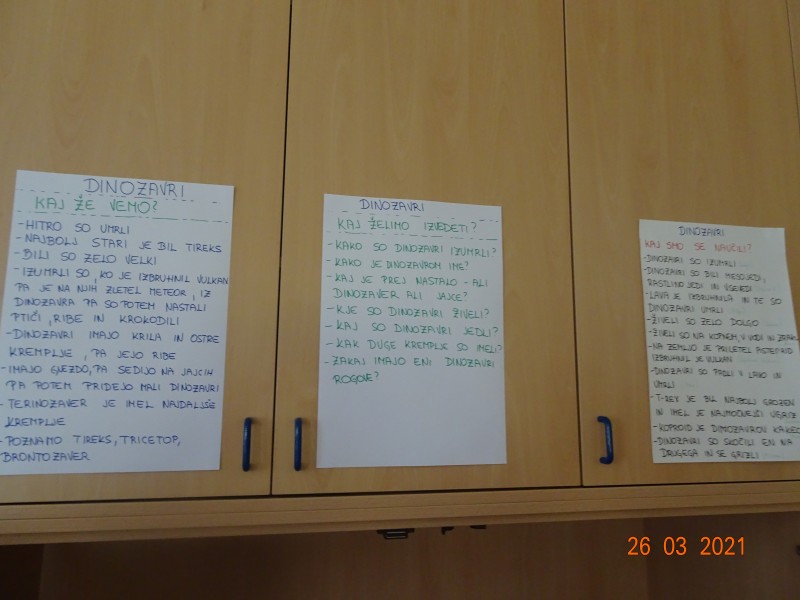 DINOZAVRI
KAJ ŽE VEMO?
- HITRO SO UMRLI
- NAJBOLJ STARI JE BIL TIREKS
- BILI SO ZELO VELKI
- IZUMRLI SO, KO JE IZBRUHNIL VULKAN
PA JE NA NJIH ZLETEL METEOR, IZ
DINOZAVRA PA SO POTEM NASTALI
PTIČI, RIBE IN KROKODILI
- DINOZAVRI IMAJO KRILA IN OSTRE
KREMPLJE, PA JEJO RIBE
- IMAJO GNEZDO, PA SEDIJO NA JAJCIH
PA POTEM PRIDEJO MALI DINOZAVRI
- TERINOZAVER JE IMEL NAJDALJŠE
KREMPLJE
- POZNAMO TIREKS, TRICETOP,
BRONTOZAVER
DINOZAVRI
KAJ ŽELIMO IZVEDETI?
- KAKO SO DINOZAVRI IZUMRLI?
- KAKO JE DINOZAVROM IME?
- KAJ JE PREJ NASTALO - ALI
DINOZAVER ALI JAJCE?
- KJE SO DINOZAVRI ŽIVELI?
- KAJ SO DINOZAVRI JEDLI?
- KAK DUGE KREMPLJE SO IMELI?
- ZAKAJ IMAJO ENI DINOZAVRI
ROGOVE?
DINOZAVRI
KAJ SMO SE NAUČILI?
- DINOZAVRI SO IZUMRLI
- DINOZAVRI SO BILI MESOJEDI,
RASTLINOJEDI IN VSEJEDI
- LAVA JE IZBRUHNILA IN TE SO
DINOZAVRI UMRLI
- ŽIVELI SO ZELO DOLGO
- ŽIVELI SO NA KOPNEM, V VODI IN ZRAKU
- NA ZEMLJO JE PRILETEL ASTEROID
IZBRUHNIL JE VULKAN
- DINOZAVRI SO PADLI V LAVO IN
UMRLI
- T-REX JE BIL NAJBOLJ GROZEN
IN IMEL JE NAJMOČNEJŠI UGRIZ
- KOPROID JE DINOZAVROV KAKEC
- DINOZAVRI SO SKOČILI EN NA
DRUGEGA IN SE GRIZLI
26 03 2021